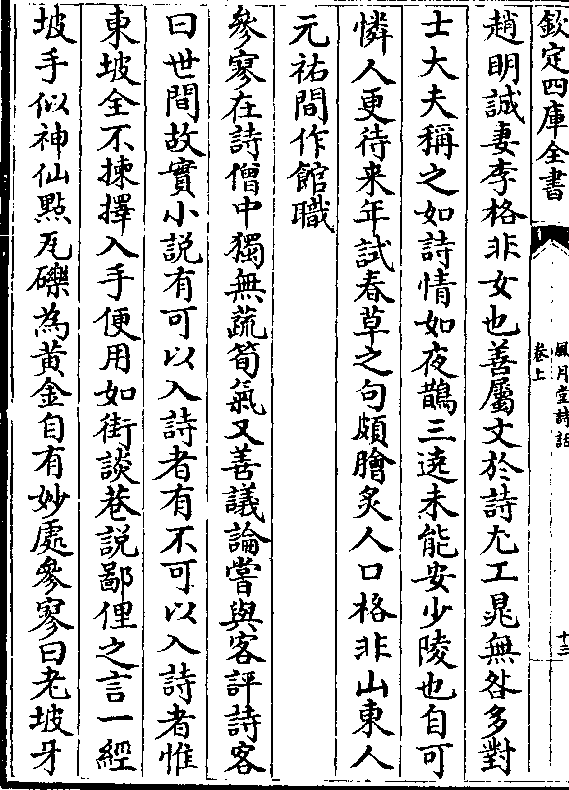 欽定四庫全書
風月堂詩話
卷上
十三
趙明誠妻李格非女也善屬文於詩尤工晁無咎多對
士大夫稱之如詩情如夜鵲三遶未能安少陵也自可
憐人更待来年試春草之句頗膾炙人口格非山東人
元祐間作館職
參寥在詩僧中獨無蔬筍氣又善議論嘗與客評詩客
曰世間故實小説有可以入詩者有不可以入詩者惟
東坡全不揀擇入手便用如街談巷説鄙俚之言一經
坡手似神仙點瓦礫為黃金自有妙處參寥曰老坡牙